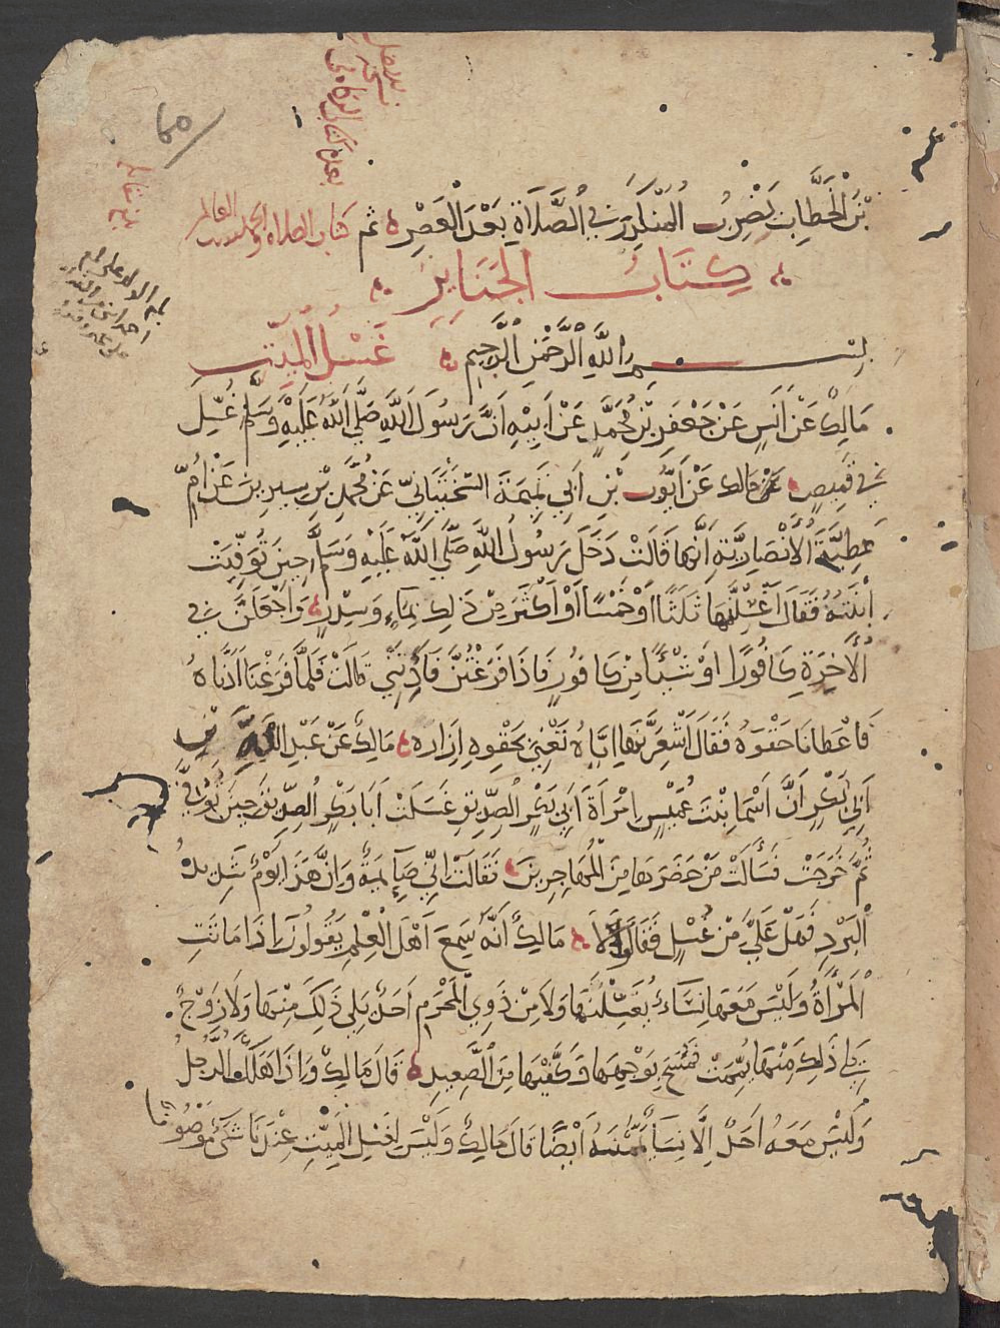 بْنَ الْخَطَّابِ يَضْرِبُ الْمُنْكَدِرَ فِي الصَّلَاةِ بَعْدَ الْعَصْرِ ثم كتاب الصلاة والحمد لله رب العالمين
كِتَابُ الجَنَايِزِ
بِسْمِ اللَّهِ الرَّحْمَنِ الرَّحِيمِ غَسْلُ الْمَيِّتِ
مَالِكُ عَنْ أَنَسٍ عَنْ جَعْفَرِ بْنِ مُحَمَّدٍ عَنْ أَبِيْهِ أَنَّ رَسُولَ اللَّهِ صَلَّى اللَّهُ عَلَيْهِ وَسَلَّمَ غُسِّلَ
فِي قَمِيصٍ مَالِك عَنْ أَيُّوب بْنِ أَبِي تَمِيمَةَ السَّخْتِيَانِيِّ عَنْ مُحَمَّدِ بْنِ سِيرِينَ عَنْ أُمِّ
عَطِيَّةَ الْأَنْصَارِيَّةِ أَنَّهَا قَالَتْ دَخَلَ رَسُولُ اللَّهِ صَلَّى اللَّهُ عَلَيْهِ وَسَلَّمَ حِينَ تُوُفِّيَتْ
ابْنَتُهُ فَقَالَ اغْسِلْنَهَا ثَلَثًا أَوْ خَمْسًا أَوْ أَكْثَرَ مِنْ ذَلِكِ بِمَاءٍ وَسِدْرٍ وَاجْعَلْنَ فِي
الْأَخِرَةِ كَافُورًا أَوْ شَيْئًا مِنْ كَافُورٍ فَاذَا فَرَغْتُنَّ فَآذِنَّنِي قَالَتْ فَلَمَّا فَرَغْنَا آذَنَّاهُ
فَأَعْطَانَا حَقْوَهُ فَقَالَ أَشْعِرْنَهَا إِيَّاهُ تَعْنِي بِحَقْوِهِ إِزَارَه مَالِكٌ عَنْ عَبْدِ اللَّهِ بْنِ
أَبِي بَكْرٍ أَنَّ أَسْمَا بِنْتَ عُمَيْسٍ امْرَأَةَ أَبِي بَكْرٍ الصِّدِّيقِ غَسَلَتْ أَبَا بَكْرٍ الصِّدِّيقَ حِينَ تُوُفِّيَ
ثُمَّ خَرَجَتْ فَسَأَلَتْ مَنْ حَضَرَهَا مِنَ الْمُهَاجِرِينَ فَقَالَتْ إِنِّي صَآئِمَةٌ وَإِنَّ هَذَا يَوْمٌ شَدِيدُ
الْبَرْدِ فَهَلْ عَلَيَّ مِنْ غُسْلٍ فَقَالُوا لَا مَالِكٌ أَنَّهُ سَمِعَ أَهْلَ الْعِلْمِ يَقُولُونَ إِذَا مَاتَتِ
الْمَرْأَةُ وَلَيْسَ مَعَهَا نِسَاءٌ يُغَسِّلْنَهَا وَلَا مِنْ ذَوِي الْمَحْرَمِ أَحَدٌ يَلِي ذَلِكَ مِنْهَا وَلَا زَوْجٌ
يَلِي ذَلِكَ مِنْهَا يُمِّمَتْ فَمُسِحَ بِوَجْهِهَا وَكَفَّيْهَا مِنَ الصَّعِيدِ قَالَ مَالِكٌ وَإِذَا هَلَكَ الرَّجُلُ
وَلَيْسَ مَعَهُ أَحَدٌ إِلَّا نِسَاءٌ يَمَّمْنَهُ أَيْضًا قَالَ مَالِكٌ وَلَيْسَ لِغَسْلِ الْمَيِّتِ عِنْدَنَا شَيْءٌ مَوْصُوفًا